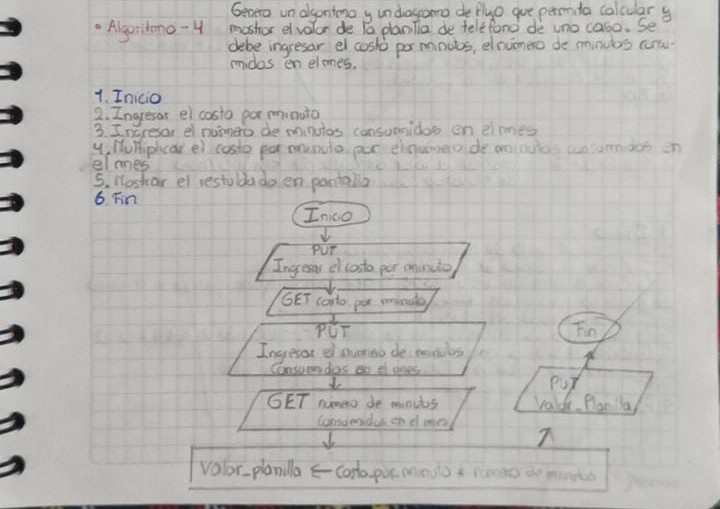 Genera un algoritmo y un diagrama de flujo que permita calcular y
• Algoritmo - 4 mostrar el valor de la planilla de teléfono de una casa. Se
debe ingresar el costo por minutos, el número de minutos consu-
midos en el mes.
1. Inicio
2. Ingresar el costo por minuto
3. Ingresar el número de minutos consumidos en el mes
4. Multiplicar el costo por minuto por el número de minutos consumidos en
el mes
5. Mostrar el restuldado en pantalla
6 Fin
Inicio
PUT
Ingresar el costo por minuto
GET costo por minuto
PUT
Ingresar el número de minutos
consumidos en el mes
GET número de minutos
consumidos en el mes
Valor_planilla ← costo por minuto * número de minuto
PUT
Valor_Planilla
Fin